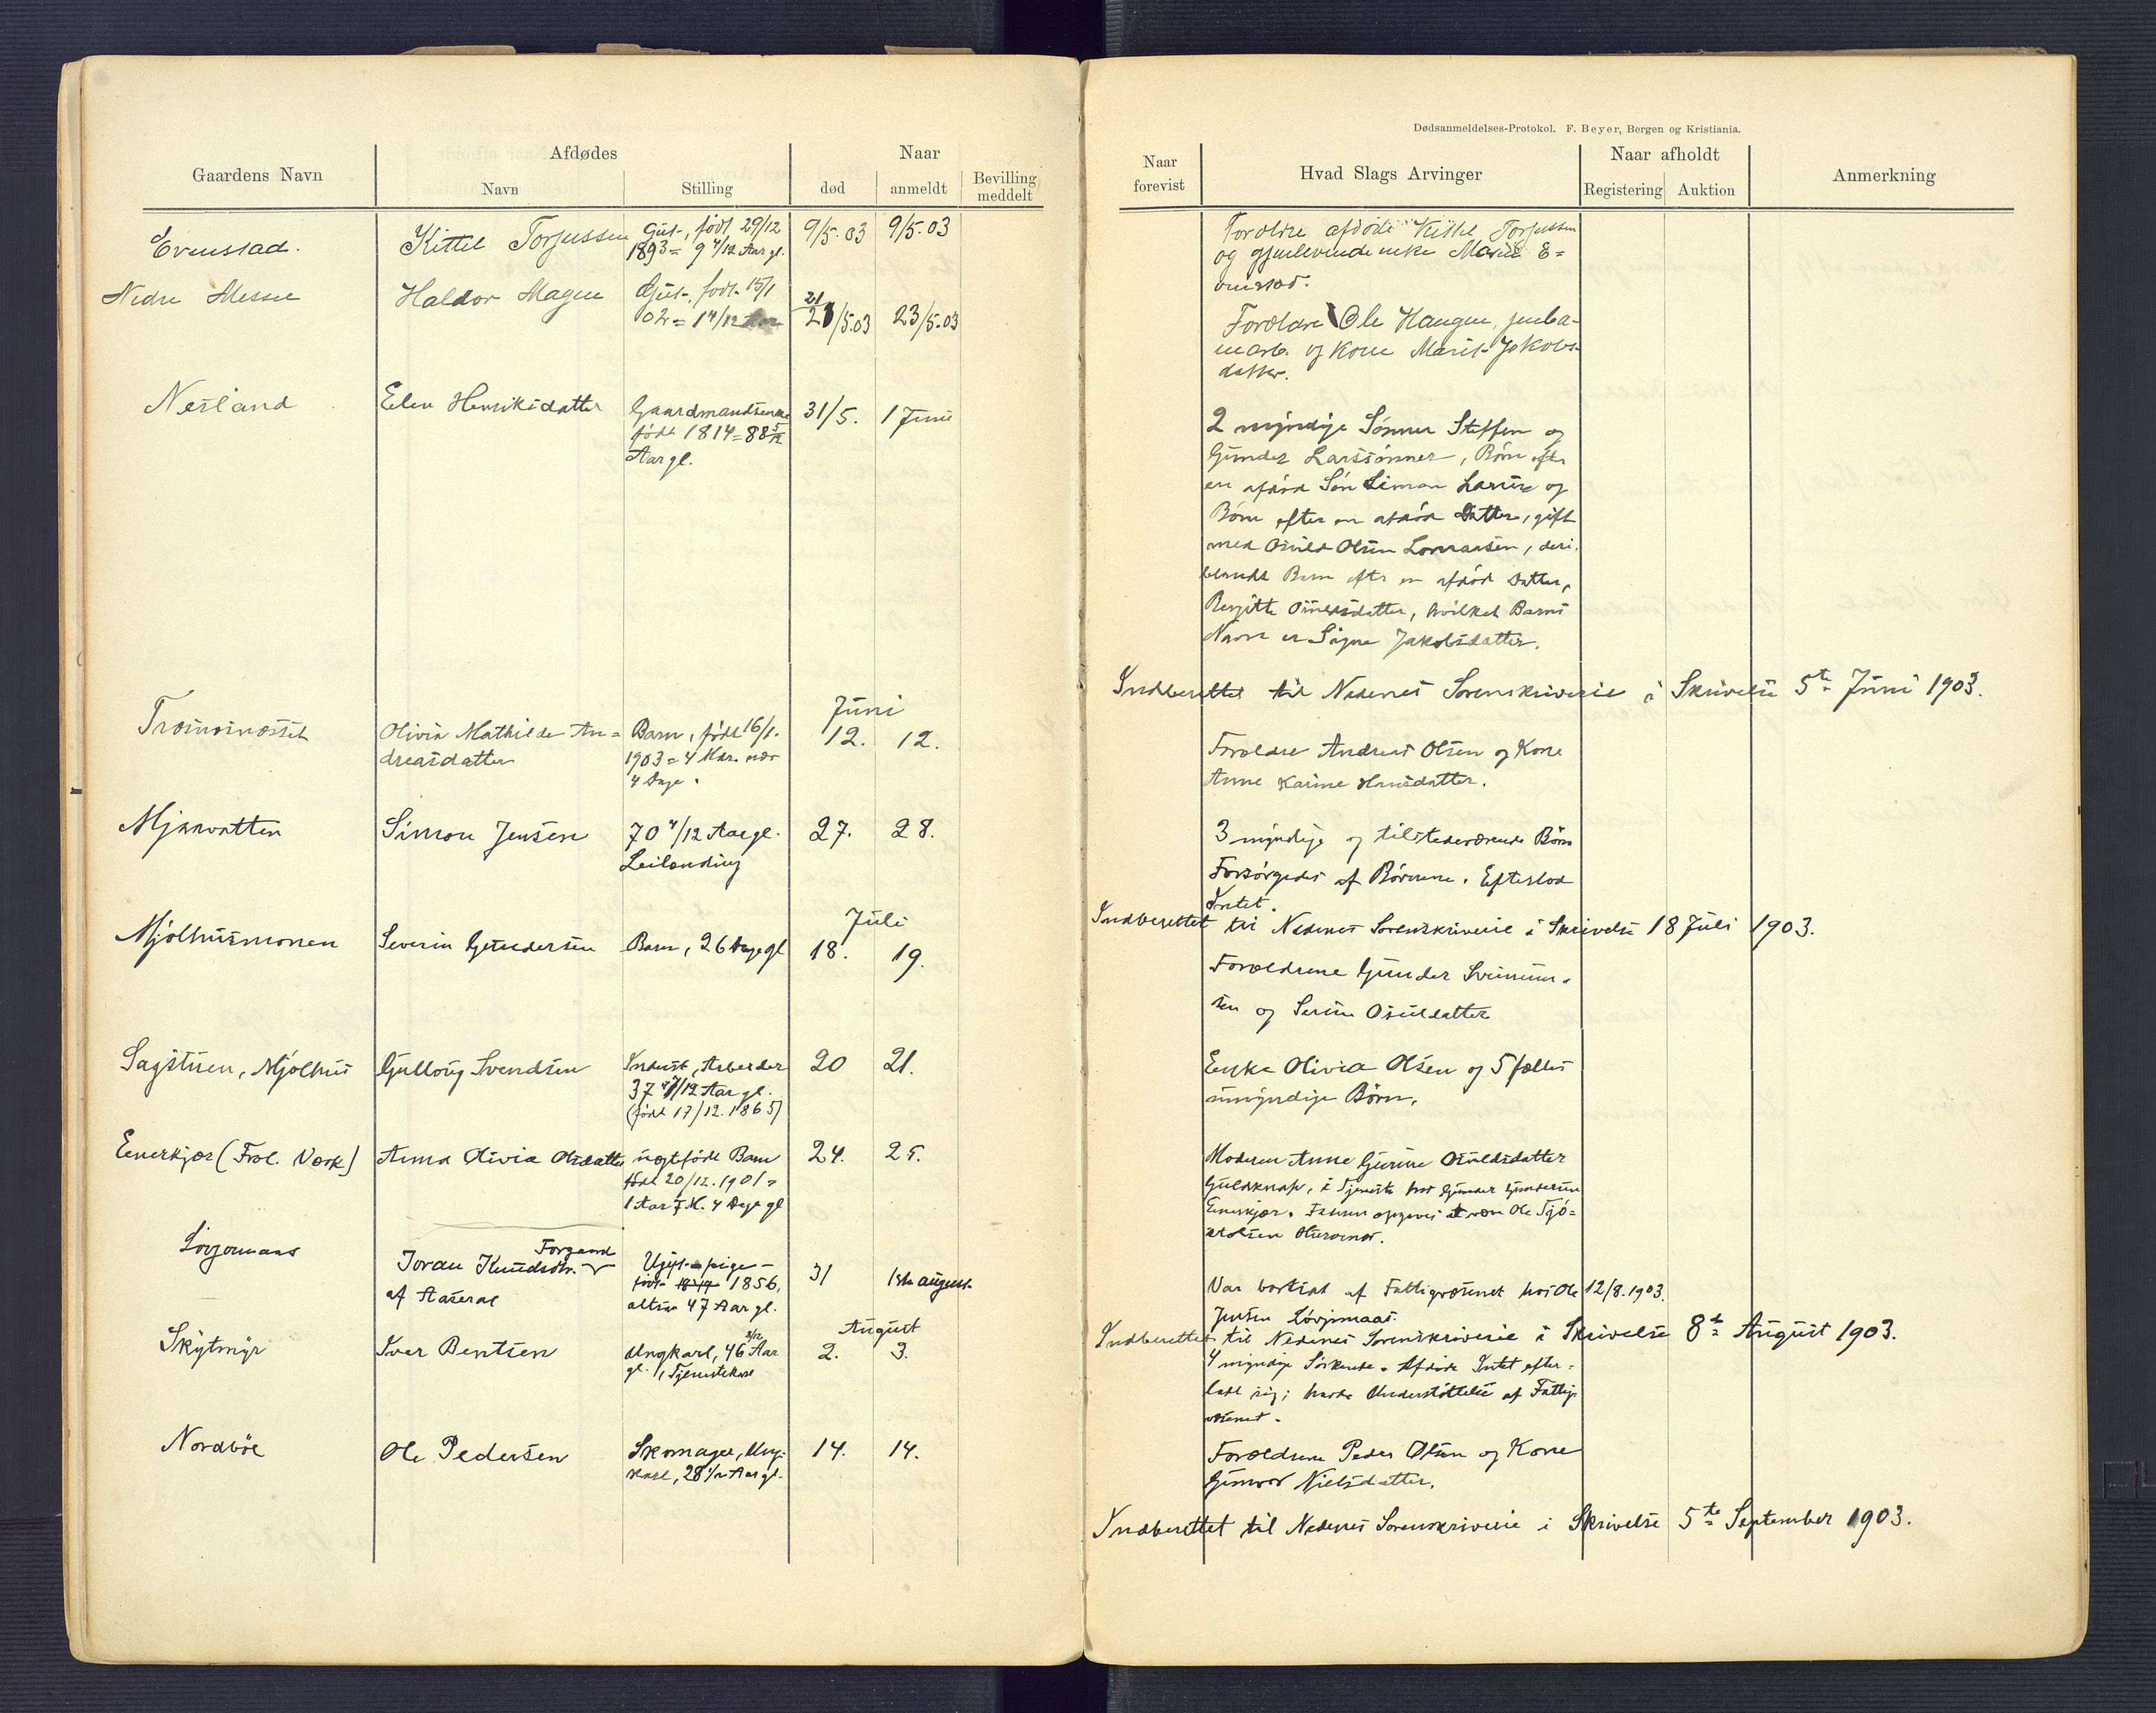 Gaardens Navn
Afdødes
Navn
Stilling
Naar
død
anmeldt
Bevilling meddelt
Evenstad.
Kittel Torjussen
Gut, født 29/12
1893 = 9 4/12 Aar gl.
9/5.03
9/5.03
Nedre Messel
Haldor Magne
Gut, født 15/1
02 = 1 4/12 Aar
21
/5.03
23/5.03
Nesland
Elen Henriksdatter
Gaardmandsenke
født 1814 = 88 5/12
Aar gl.
31/5.
1 Juni
Juni
Tromsnæsset
Olivia Mathilde An=
dreasdatter
Barn, født 16/1.
1903 = 4 Mdr.
4 Dage.
12.
12.
Mjaavatten
Simon Jensen
70 4/12 Aar gl.
Leilending
27.
28.
Juli
Mjølhusmonen
Severin Gundersen
Barn, 26 Dage gl
18.
19.
Sagstuen, Mjølhus
Gullov Svendsen
Indust, Arbeider
37 7/12 Aar gl.
(født 17/12.1865)
20
21.
Enerkjær (Frol. Værk)
Anna Olivia Olsdatter
uægtefødt Barn
født 20/12.1901 =
1 Aar 7 M. 4 Dage gl
24.
25.
Løvjomaas
Joran Knudsdtr.
af Aaseral
Ugift pige
født 1856,
altsaa 47 Aar gl.
31
1ste august
August
Skytmyr
Iver Bentsen
Ungkarl, 46 Aar
gl., Tjenestekarl
2.
3.
Nordbøe
Ole Pedersen
Skomager, Ung-
karl, 28 1/2 Aar gl.
14.
14.
Dødsanmeldelses-Protokol. F. Beyer, Bergen og Kristiania.
Naar forevist
Hvad Slags Arvinger
Naar afholdt
Registering
Auktion
Anmerkning
Forældre afdøde Kittel Torjussen
og gjenlevende enke Marie E=
venstad.
Forældre Ole Haugen, jenba-
nearb. og Kone Marit Jakobs-
datter.
2 myndige Sønner Steffen og
Gunder Larssønner, Børn efter
en afdød Søn Simon Larsen og
Børn efter en afdød Datter, gift
med Osuld Olsen Lomaasen, deri-
blandt Barn efter en afdød Datter,
Bergitte Osuldsdatter, hvilket Barns
Navn er Signe Jakobsdatter.
Indberettet til Nedenes Sorenskriverie i Skrivelse 5te Juni 1903.
Forældre Andreas Olsen og Kone
Anne Karine Hansdatter.
3 myndige og tilstedeværende Børn
Forsørgedes af Børnene. Efterlod
Intet.
Indberettet til Nedenes Sorenskriverie i Skrivelse 18 Juli 1903.
Forældrene Gunder
sen og Serine Osuldsdatter
Enke Olivia Olsen og 5 fælles
umyndige Børn.
Moderen Anne Gurine Osuldsdatter
Guldknap, i Tjeneste hos Gunder Gundersen
Enerkjær. Faderen opgives at være Ole
Var bortsat af Fattigvæsenet hos Ole
Jensen Løvjomaas.
12/8.1903.
Indberettet til Nedenes Sorenskriverie i Skrivelse 8de August 1903.
4 myndige Søskende. Afdøde Intet efter-
ladt sig; havde Understøttelse af Fattig-
væsenet.
Forældrene Peder Olsen og Kone
Gunvor Nielsdatter.
Indberettet til Nedenes Sorenskriverie i Skrivelse 5te September 1903.